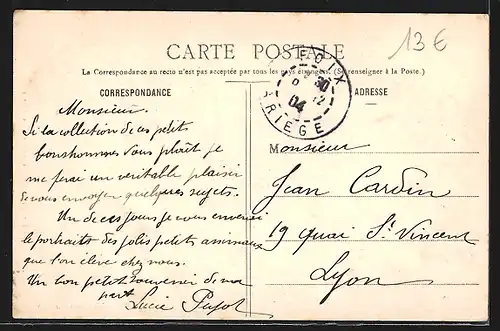 13€
CARTE POSTALE
La Correspondance au recto n'est pas acceptée par tous les pays étrangers. (Se renseigner à la Poste.)
CORRESPONDANCE
ADRESSE
FOIX
30
12
04
ARIEGE
Monsieur.
Si la collection de ces petits
bonshommes vous plaît je
me ferai un veritable plaisir
de vous envoyer quelques sujets.
Un de ces jours je vous enverrai
le portraits des jolis petits animaux
que l'on élève chez nous.
Un bon petit souvenir de ma
part Lucie Pujol
Monsieur
Jean Cardin
19 quai St Vincent
Lyon